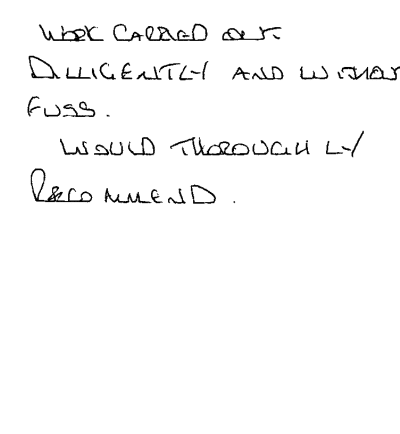 WORK CARRIED OUT
DILLIGENTLY AND WITHOUT
FUSS.
WOULD THOROUGHLY
RECOMMEND.